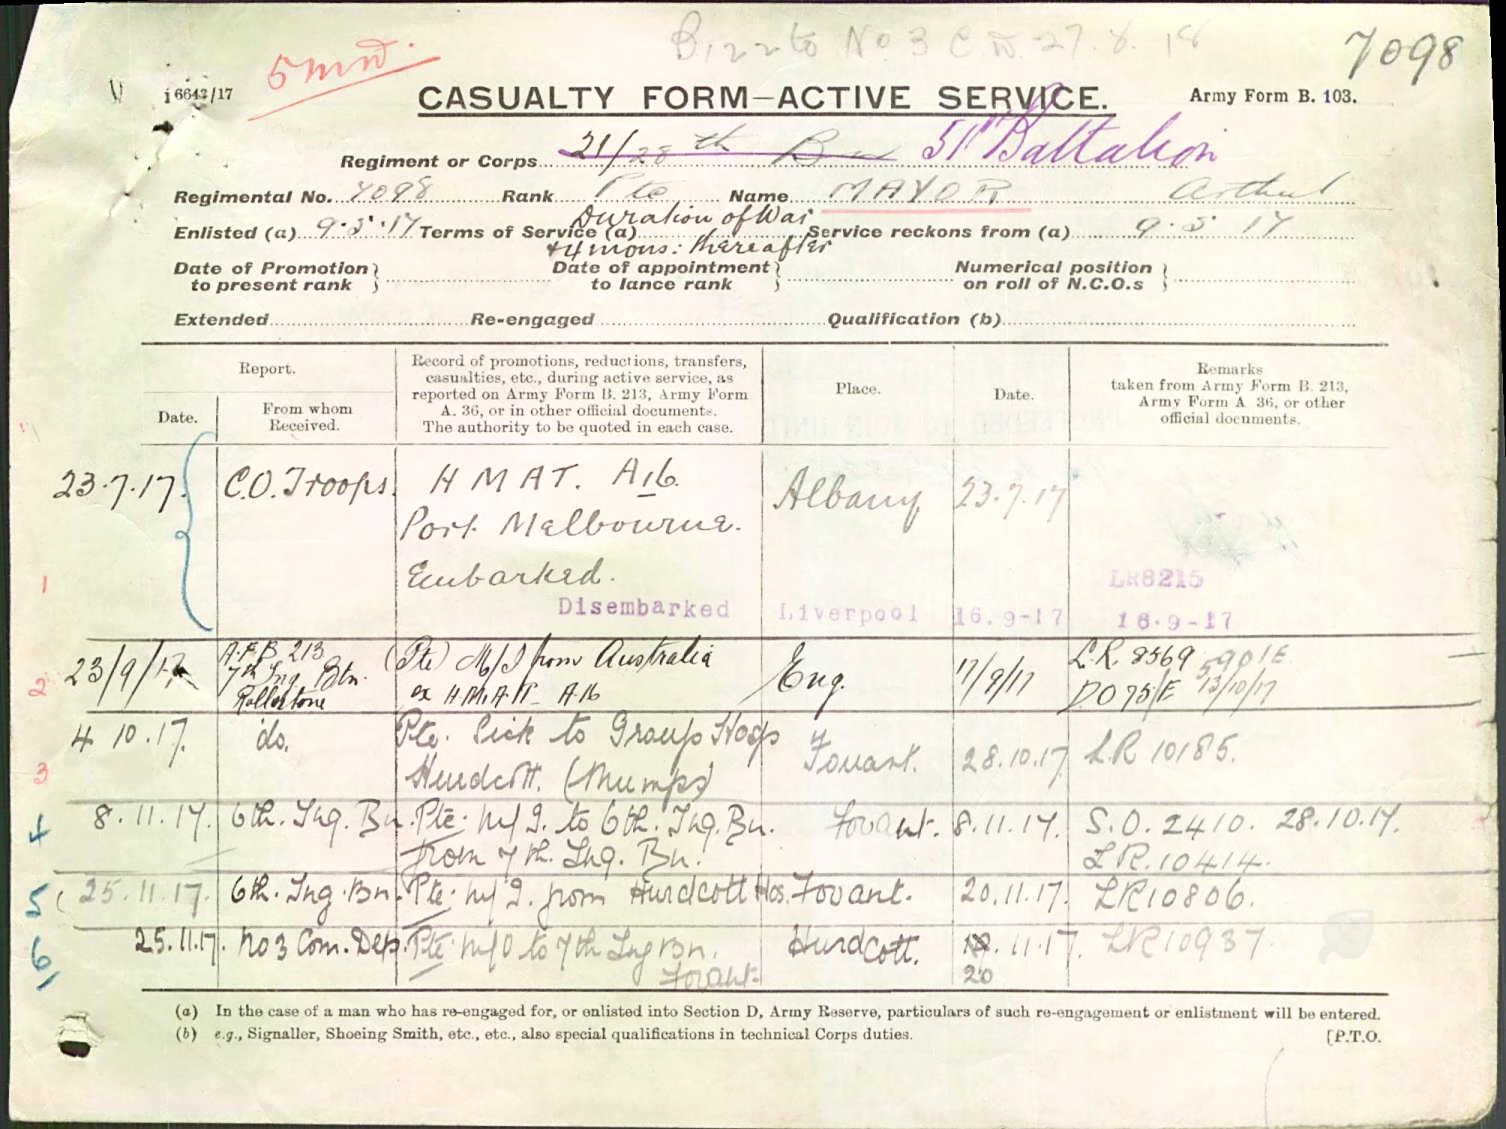 5 md.
B1222 to No 3 C.D. 27.8.18
7098
i 6642/17
CASUALTY FORM—ACTIVE SERVICE.
Army Form B. 103.
Regiment or Corps 21/28th Bn 51st Battalion
Regimental No. 7098 Rank Pte Name MAYOR Arthur
Enlisted (a) 9.5.17 Terms of Service (a) Duration of War + 4 mons: thereafter Service reckons from (a) 9.5.17
Date of Promotion to present rank
Date of appointment to lance rank
Numerical position on roll of N.C.O.s
Extended Re-engaged Qualification (b)
Report.
Date.
From whom Received.
Record of promotions, reductions, transfers,
casualties, etc., during active service, as
reported on Army Form B. 213, Army Form
A. 36, or in other official documents.
The authority to be quoted in each case.
Place.
Date.
Remarks
taken from Army Form B. 213,
Army Form A. 36, or other
official documents.
23.7.17. C.O. Troops. H M A T. A16. Albany 23.7.17
Port Melbourne.
Embarked.
LR8215
Disembarked Liverpool 16.9-17 16.9-17
1
2
23/9/17 A.F.B. 213 7th Tng Btn. Rollestone (Pte) M/I from Australia ex H.M.A.T. A16 Eng. 17/9/17 L.R. 8369 5901E
DO 75/E 13/10/17
3
4 10.17. do. Pte. Sick to Group Hosp Hurdcott. (Mumps) Fovant. 28.10.17 L.R 10185.
4
8.11.17. 6th. Tng. Bn. Pte. M/I. to 6th. Tng. Bn. from 7th. Tng. Bn. Fovant. 8.11.17. S.O. 2410. 28.10.17.
LR.10414.
5
25.11.17. 6th. Tng. Bn. Pte. M/I. from Hurdcott Hos. Fovant. 20.11.17. LR10806.
6
25.11.17. No 3 Com. Dep. Pte. M/O to 7th Tng Bn. Fovant. Hurdcott. 20.11.17. LR10937.
(a) In the case of a man who has re-engaged for, or enlisted into Section D, Army Reserve, particulars of such re-engagement or enlistment will be entered.
(b) e.g., Signaller, Shoeing Smith, etc., etc., also special qualifications in technical Corps duties.
[P.T.O.